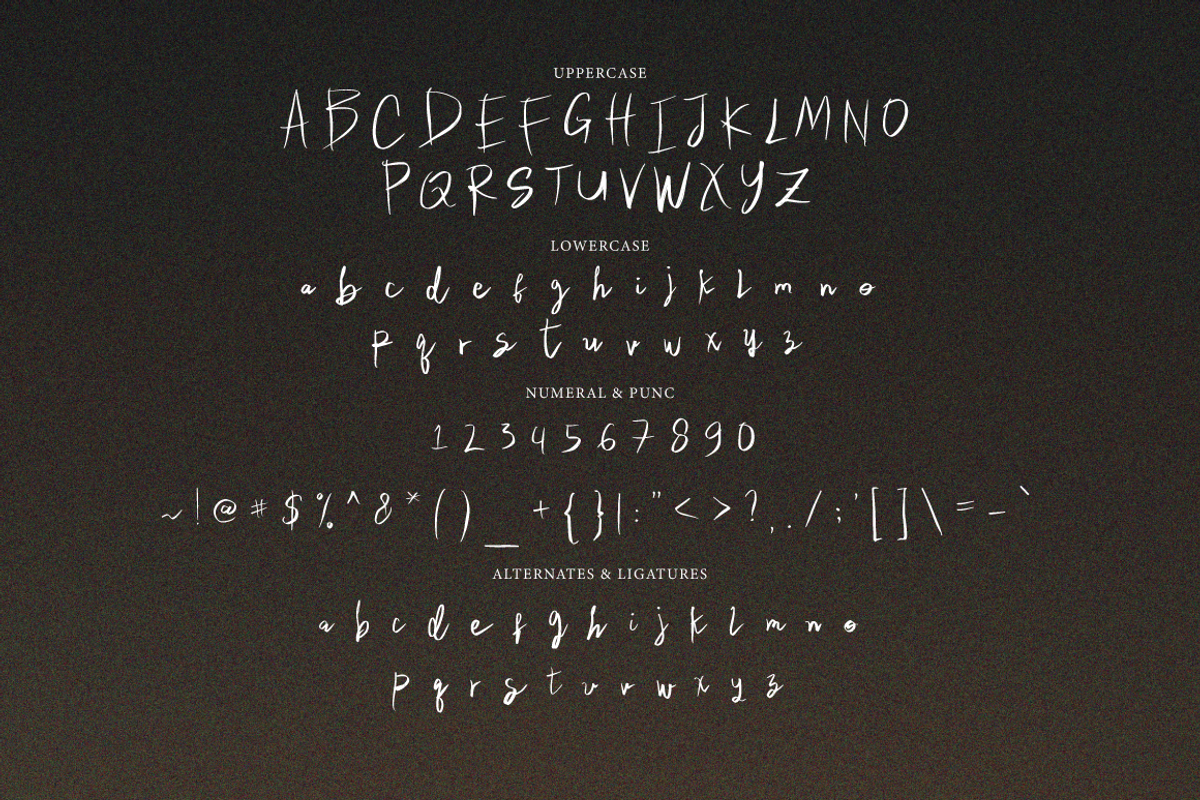 UPPERCASE
A B C D E F G H I J K L M N O
P Q R S T U V W X Y Z
LOWERCASE
a b c d e f g h i j k l m n o
p q r s t u v w x y z
NUMERAL & PUNC
1 2 3 4 5 6 7 8 9 0
~ ! @ # $ % ^ & * ( ) _ + { } | : " < > ? , . / ; ' [ ] \ = - `
ALTERNATES & LIGATURES
a b c d e f g h i j k l m n o
p q r s t u v w x y z